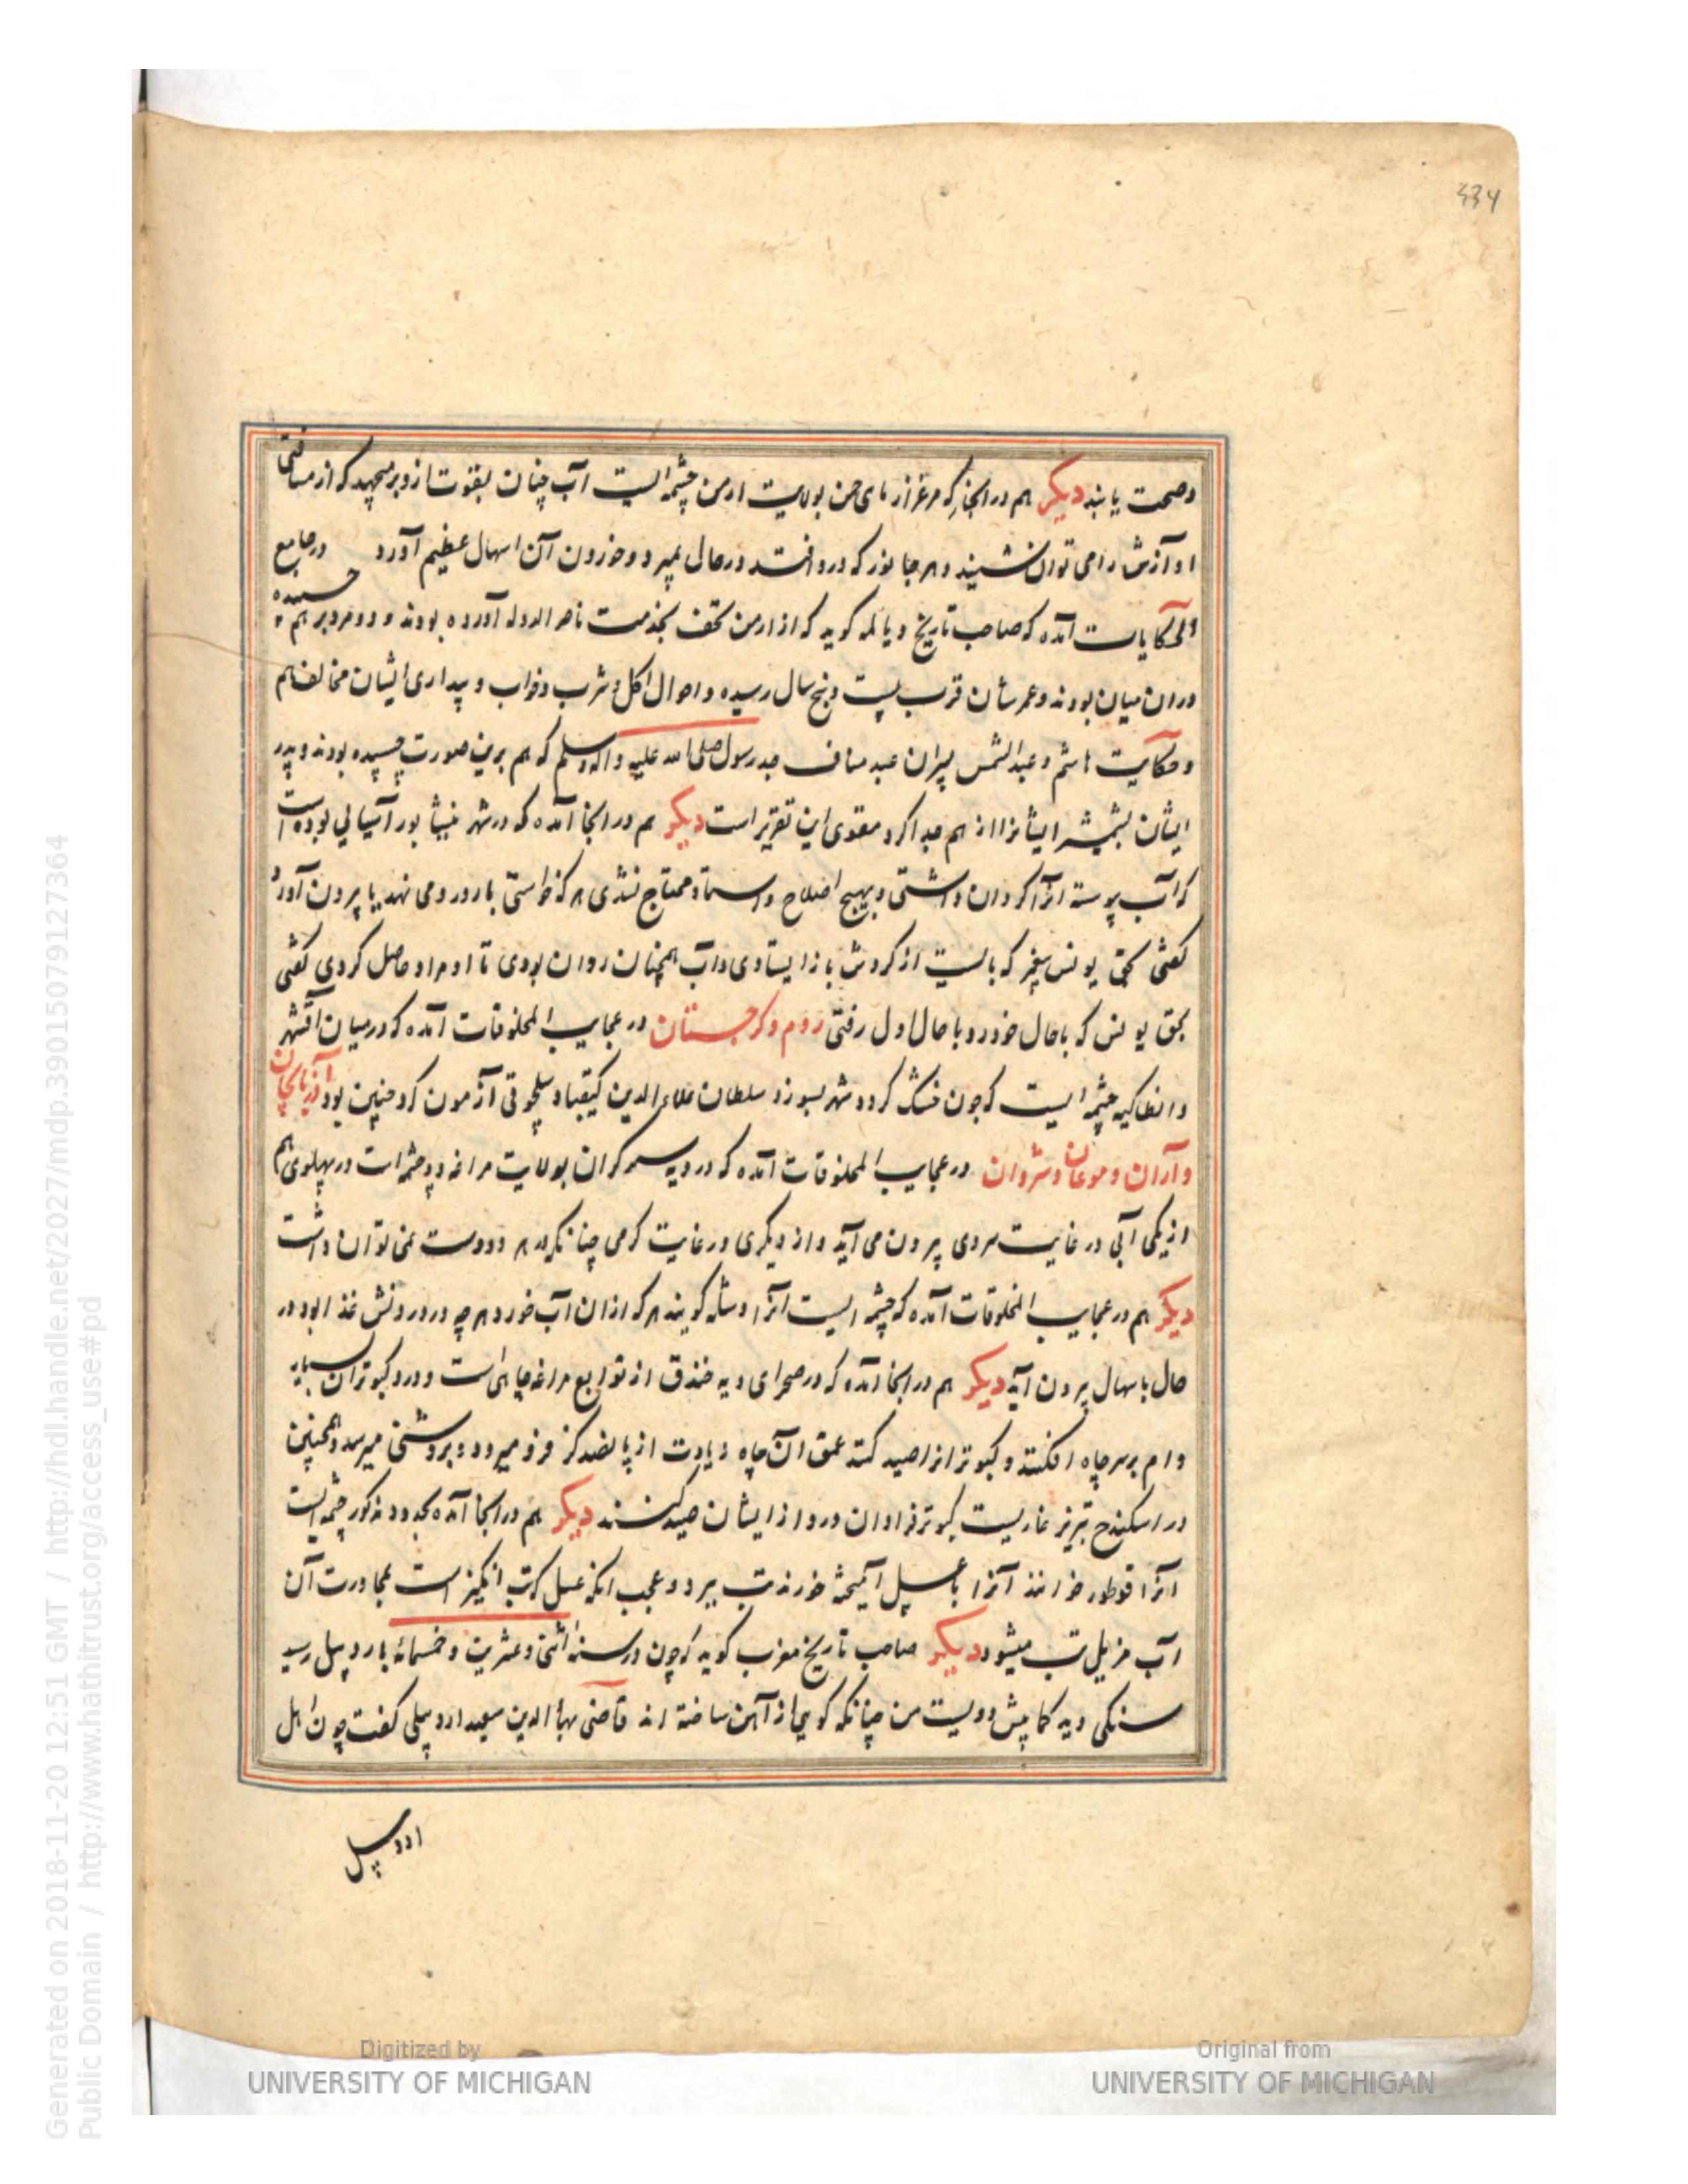 434
وصحت یابند دیکر هم در انجا که مرغزار مای حن بولایت ارمن چشمه ایست آب چنان بقوت ازو بر میجهد که از مسافتی
اوآزش را می توان شنیند و هر جانور که درو افتد در حال بمیرد و خوردن آن اسهال عظیم آورد در جامع
الحکایات آمده که صاحب تاریخ دیالمه کوید که از ارمن تحف بخدمت ناصر الدوله آورده بودند و دو مرد بر هم چسبیده
دران میان بودند و عمرشان قرب بیست و پنج سال رسیده و احوال اکل و شرب و خواب و بیداری ایشان مخالف هم
و حکایت هاشم و عبدالشمس پسران عبد مناف جد رسول صلی الله علیه واله وسلم که هم برین صورت چسپیده بودند و پدر
ایشان بشمشیر ایشانرا از هم جدا کرد مقوی این تقریر است دیکر هم در انجا آمده که در شهر نیشابور آسیائی بوده است
که آب پیوسته انرا کردان داشتی و بهیچ اصلاح و استاد محتاج نشدی هر که خواستی بار درو می نهد یا بیرون آورد
کفتی بحق یونس پیغمبر که بایست از کردش باز ایستادی و آب همچنان روان بودی تا او مراد حاصل کردی کفتی
بحق یونس که با حال خود رو با حال اول رفتی روم و کرجستان در عجایب المخلوقات آمده که در میان اقشهر
و انطاکیه چشمه ایست که چون خشک کردد شهر بسوزد سلطان علاء الدین کیقباد سلجوقی آزمون کرد چنین بود آذربایجان
و آران و موغان و شروان در عجایب المخلوقات آمده که در دیه سمرکران بولایت مراغه دو چشمه است در پهلوی هم
از یکی آبی در غایت سردی بیرون می آید و از دیکری در غایت کرمی چنانکه در هر دو دست نمی توان داشت
دیکر هم در عجایب المخلوقات آمده که چشمه ایست انرا وشله کویند هر که ازان آب خورد هر چه در درونش غذا بود در
حال باسهال بیرون آید دیکر هم در انجا آمده که در صحرای دیه خندق از توابع مراغه چاهی است و درو کبوتران بسیار
دام بر سر چاه افکنند و کبوترانرا صید کنند عمق آن چاه زیادت از پانصد کز فرو میرود و بروشنی میرسد و همچنین
در اسکندح تبریز غاریست کبوتر فراوان درو از ایشان صید کنند دیکر هم در انجا آمده بحدود مذکور چشمه ایست
انرا قوطور خوانند آنرا با عسل آمیخته خورند تب ببرد و عجب انکه عسل کرت انکیز است بمجاورت آن
آب مزیل تب میشود دیکر صاحب تاریخ مغرب کوید که چون در سنه اثنی و عشرین و خمسمائه باردبیل رسید
سنکی دید کمابیش دویست من چنانکه کویی از آهن ساخته اند قاضی بهاء الدین سعید اردبیلی کفت چون اهل
اردبیل
Generated on 2018-11-20 12:51 GMT / http://hdl.handle.net/2027/mdp.39015079127364
Public Domain / http://www.hathitrust.org/access_use#pd
Digitized by
UNIVERSITY OF MICHIGAN
Original from
UNIVERSITY OF MICHIGAN